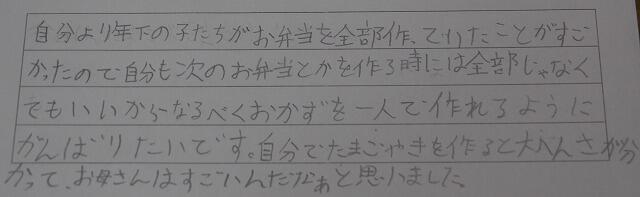 自分より年下の子たちがお弁当を全部作っていたことがすご
かったので自分も次のお弁当とかを作る時には全部じゃなく
てもいいからなるべくおかずを一人で作れるように
がんばりたいです。自分でたまごやきを作ると大へんさが分
かって、お母さんはすごいんだなぁと思いました。